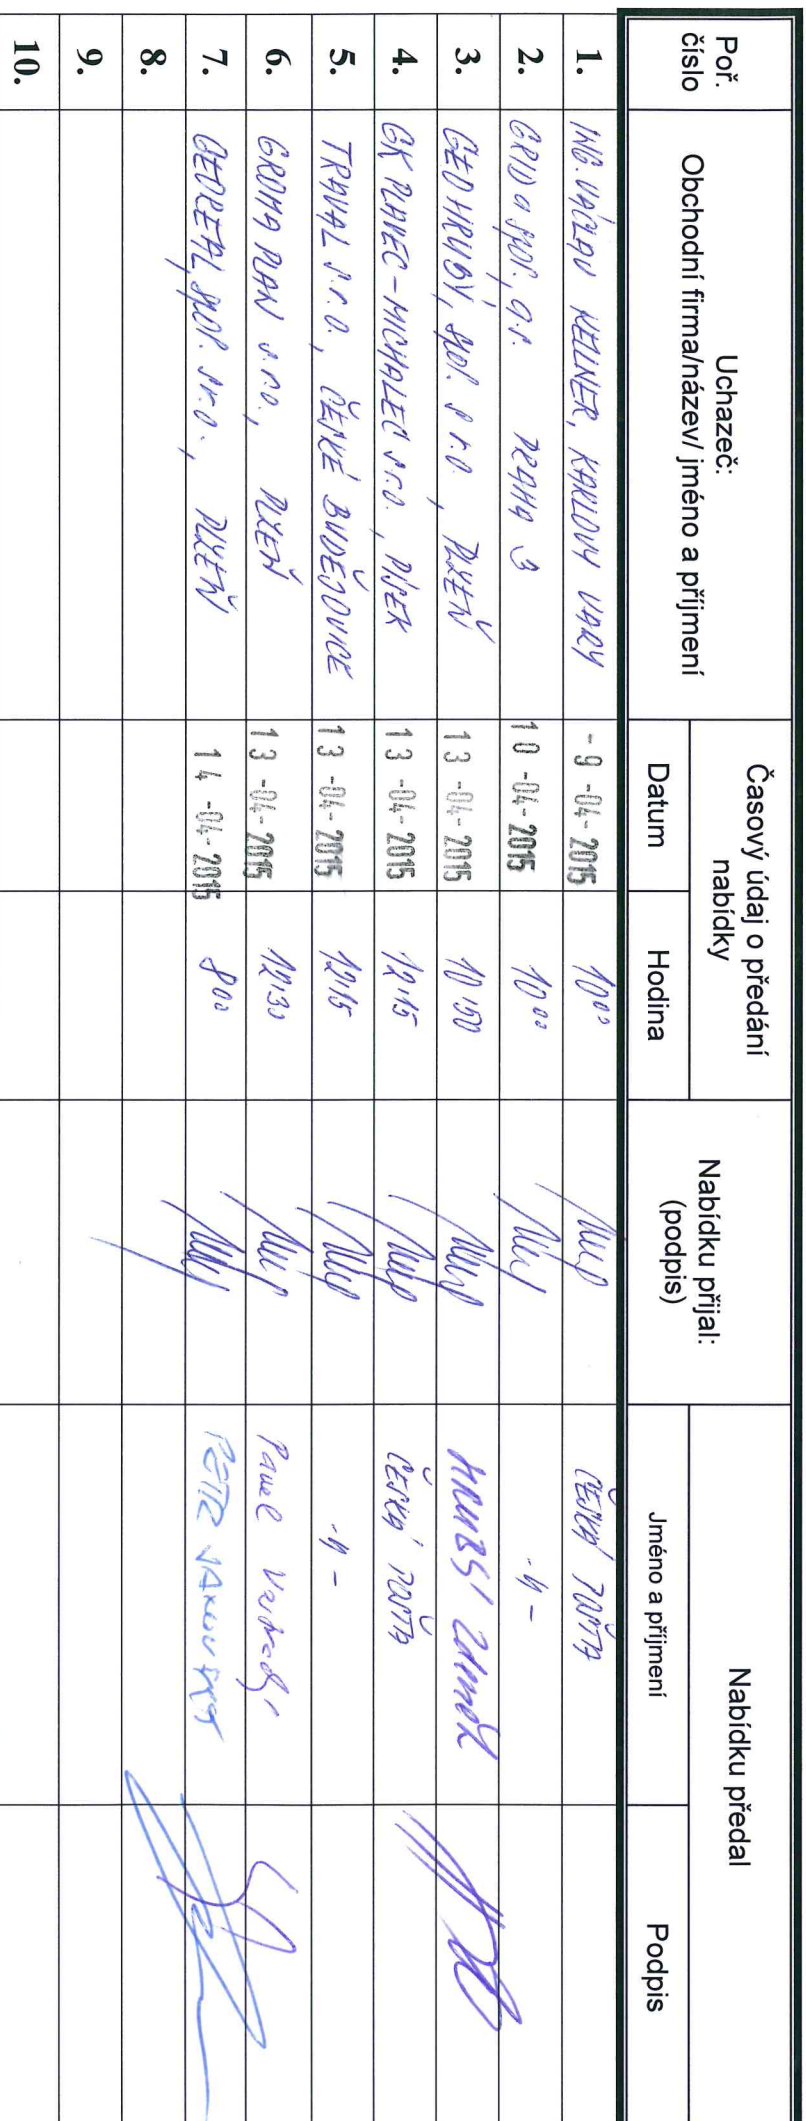 Poř. číslo
Uchazeč:
Obchodní firma/název/ jméno a příjmení
Časový údaj o předání nabídky
Datum
Hodina
Nabídku přijal:
(podpis)
Nabídku předal
Jméno a příjmení
Podpis
1. ING. VÁCLAV KELLNER, KARLOVY VARY - 9 -04- 2015 10⁰⁰ ČESKÁ POŠTA
2. GRID a spol., a.s. PRAHA 3 10 -04- 2015 10⁰⁰ -"-
3. GEO HRUBÝ, spol. s r.o., PLZEŇ 13 -04- 2015 10:50 HRUBÝ
4. GK PLAVEC - MICHALEC s.r.o., PÍSEK 13 -04- 2015 12:15 ČESKÁ POŠTA
5. TRAVAL s.r.o., ČESKÉ BUDĚJOVICE 13 -04- 2015 12:15 -"-
6. GROMA PLAN s.r.o., PLZEŇ 13 -04- 2015 12:30 Pavel
7. GEOREAL, spol. s r.o., PLZEŇ 14 -04- 2015 8⁰⁰ PETR
8.
9.
10.